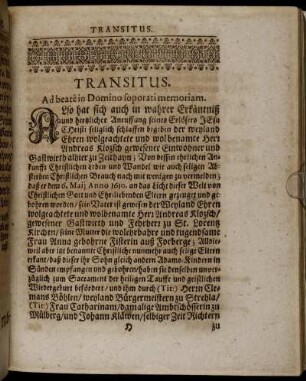 TRANSITUS.
TRANSITUS.
Ad beatè in Domino soporati memoriam.
Also hat sich auch in wahrer Erkäntniß
und hertzlicher Anruffung seines Erlösers JEsu
CHristi seliglich schlaffen begeben der weyland
Ehren wolgeachtete und wolbenamte Herr
Andreas Klotzsch gewesener Einwohner und
Gastwirth allhier zu Zeithayn; Von dessen ehrlichen An-
kunfft Christlichen Leben und Wandel wie auch seligen Ab-
sterben Christlichen Brauch nach mit wenigen zu vermelden;
daß er den 6. Maij Anno 1610. an das Liecht dieser Welt von
Christlichen Gott und Ehrliebenden Eltern gezeuget und ge-
bohren worden/ sein Vater ist gewesen der Weyland Ehren
wolgeachtete und wolbenamte Herr Andreas Klotzsch/
gewesener Gastwirth und Fenden zu St. Lorentz
Kirchen/ seine Mutter die wolehrbahre und tugendsame
Frau Anna gebohrne Fisterin auß Forberge; Alldie-
weil aber ist benannte Christliche nunmehr auch selige Eltern
erkant/ daß dieser ihr Sohn gleich andern Adams-Kindern in
Sünden empfangen und gebohren/ haben sie denselben unver-
züglich zum Sacrament der heiligen Tauffe und geistlichen
Wiedergeburt befördert/ und ihm durch (Tit:) Herrn Cle-
mans Böhlen/ weyland Bürgermeistern zu Strehla/
(Tit:) Frau Catharinam/ damalige Ambtschösserin zu
Mülberg/ und Johann Kläwen/ selbiger Zeit Richtern
zu